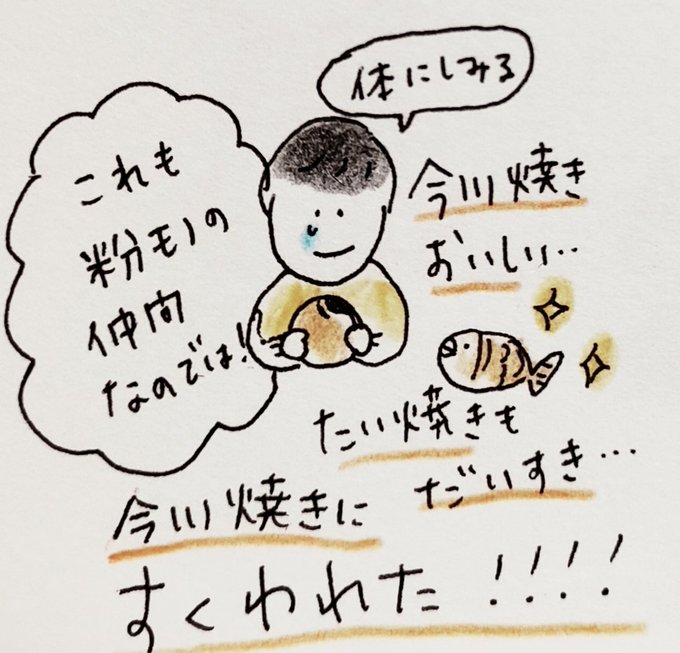 体にしみる
これも
粉モノの
仲間
なのでは!
今川焼き
おいしい…
たい焼きも
だいすき…
今川焼きに
すくわれた!!!!